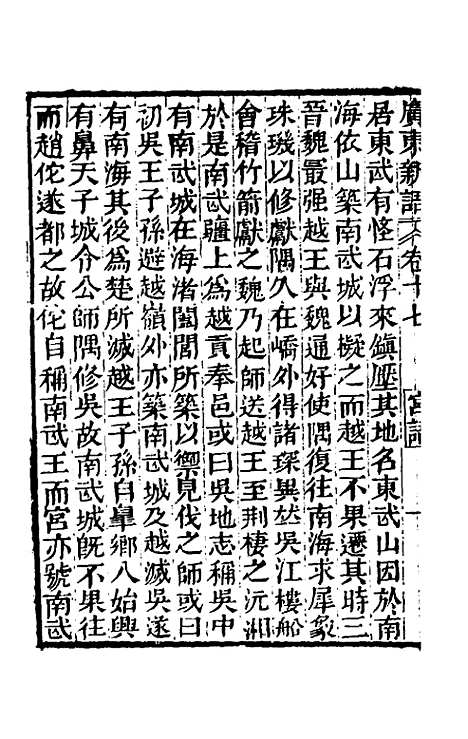 廣東新語 卷十七 宮語 一
居東武有怪石浮來鎮壓其地名東武山因於南
海依山築南武城以擬之而越王不果遷其時三
晉魏最强越王與魏通好使隅復往南海求犀象
珠璣以修獻隅久在嶠外得諸琛異并吳江樓船
會稽竹箭獻之魏乃起師送越王至荆棲之沅湘
於是南武疆土爲越貢奉邑或曰吳地志稱吳中
有南武城在海渚闔閭所築以禦見伐之師或曰
初吳王子孫避越嶺外亦築南武城及越滅吳遂
有南海其後爲楚所滅越王子孫自皋鄉入始興
有鼻天子城令公師隅修吳故南武城旣不果往
而趙佗遂都之故佗自稱南武王而宮亦號南武